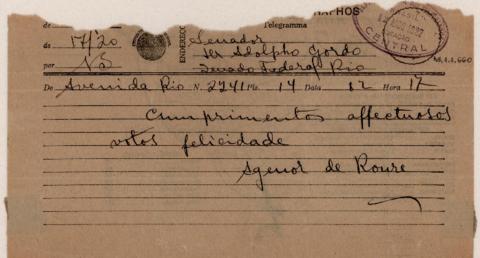 PHOS
Telegramma
de
de 17/20
por
ENDEREÇO
Senador
Adolpho Gordo
Senado Federal Rio
CENTRAL
De Avenida Rio N. 2741 Pls. 14 Data 12 Hora 17
Cumprimentos affectuosos
votos felicidade
Agenor de Roure